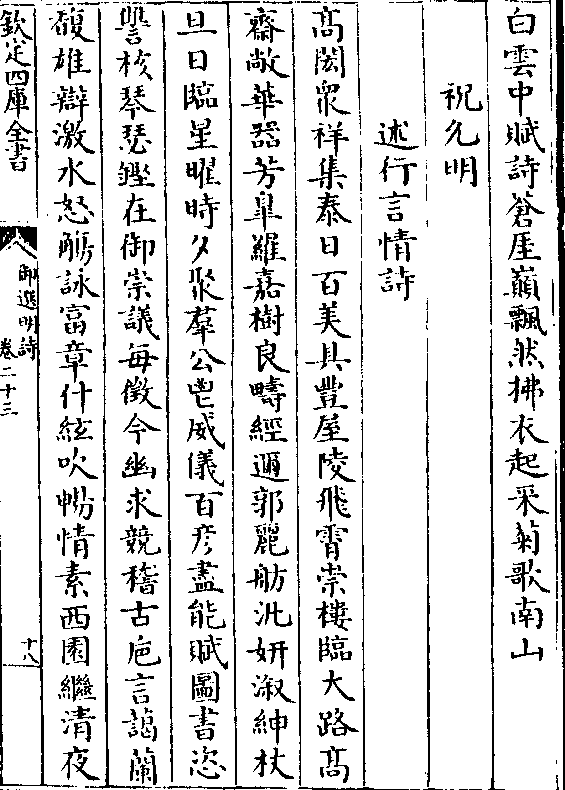 白雲中賦詩蒼厓巔飄然拂衣起采菊歌南山
祝允明
述行言情詩
髙閎衆祥集泰日百美具豐屋陵飛霄崇樓臨大路髙
齋敞華器芳臯羅嘉樹良疇經邇郭麗舫汎妍溆紳杖
旦日臨星曜時夕聚羣公邕威儀百彦盡能賦圖書恣
讐核琴瑟鏗在御崇議每徵今幽求競稽古巵言藹蘭
馥雄辯激水怒觴詠富章什絃吹暢情素西園繼清夜
欽定四庫全書
御選明詩
卷二十三
十八